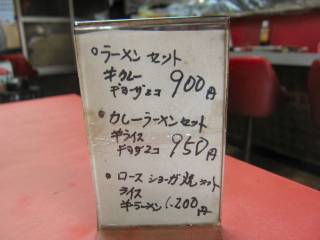 ○ラーメンセット
半カレー
ギョーザ2コ 900円
●カレーラーメンセット
半ライス
ギョーザ2コ 950円
●ロースショーガ焼セット
ライス
半ラーメン 1.200円